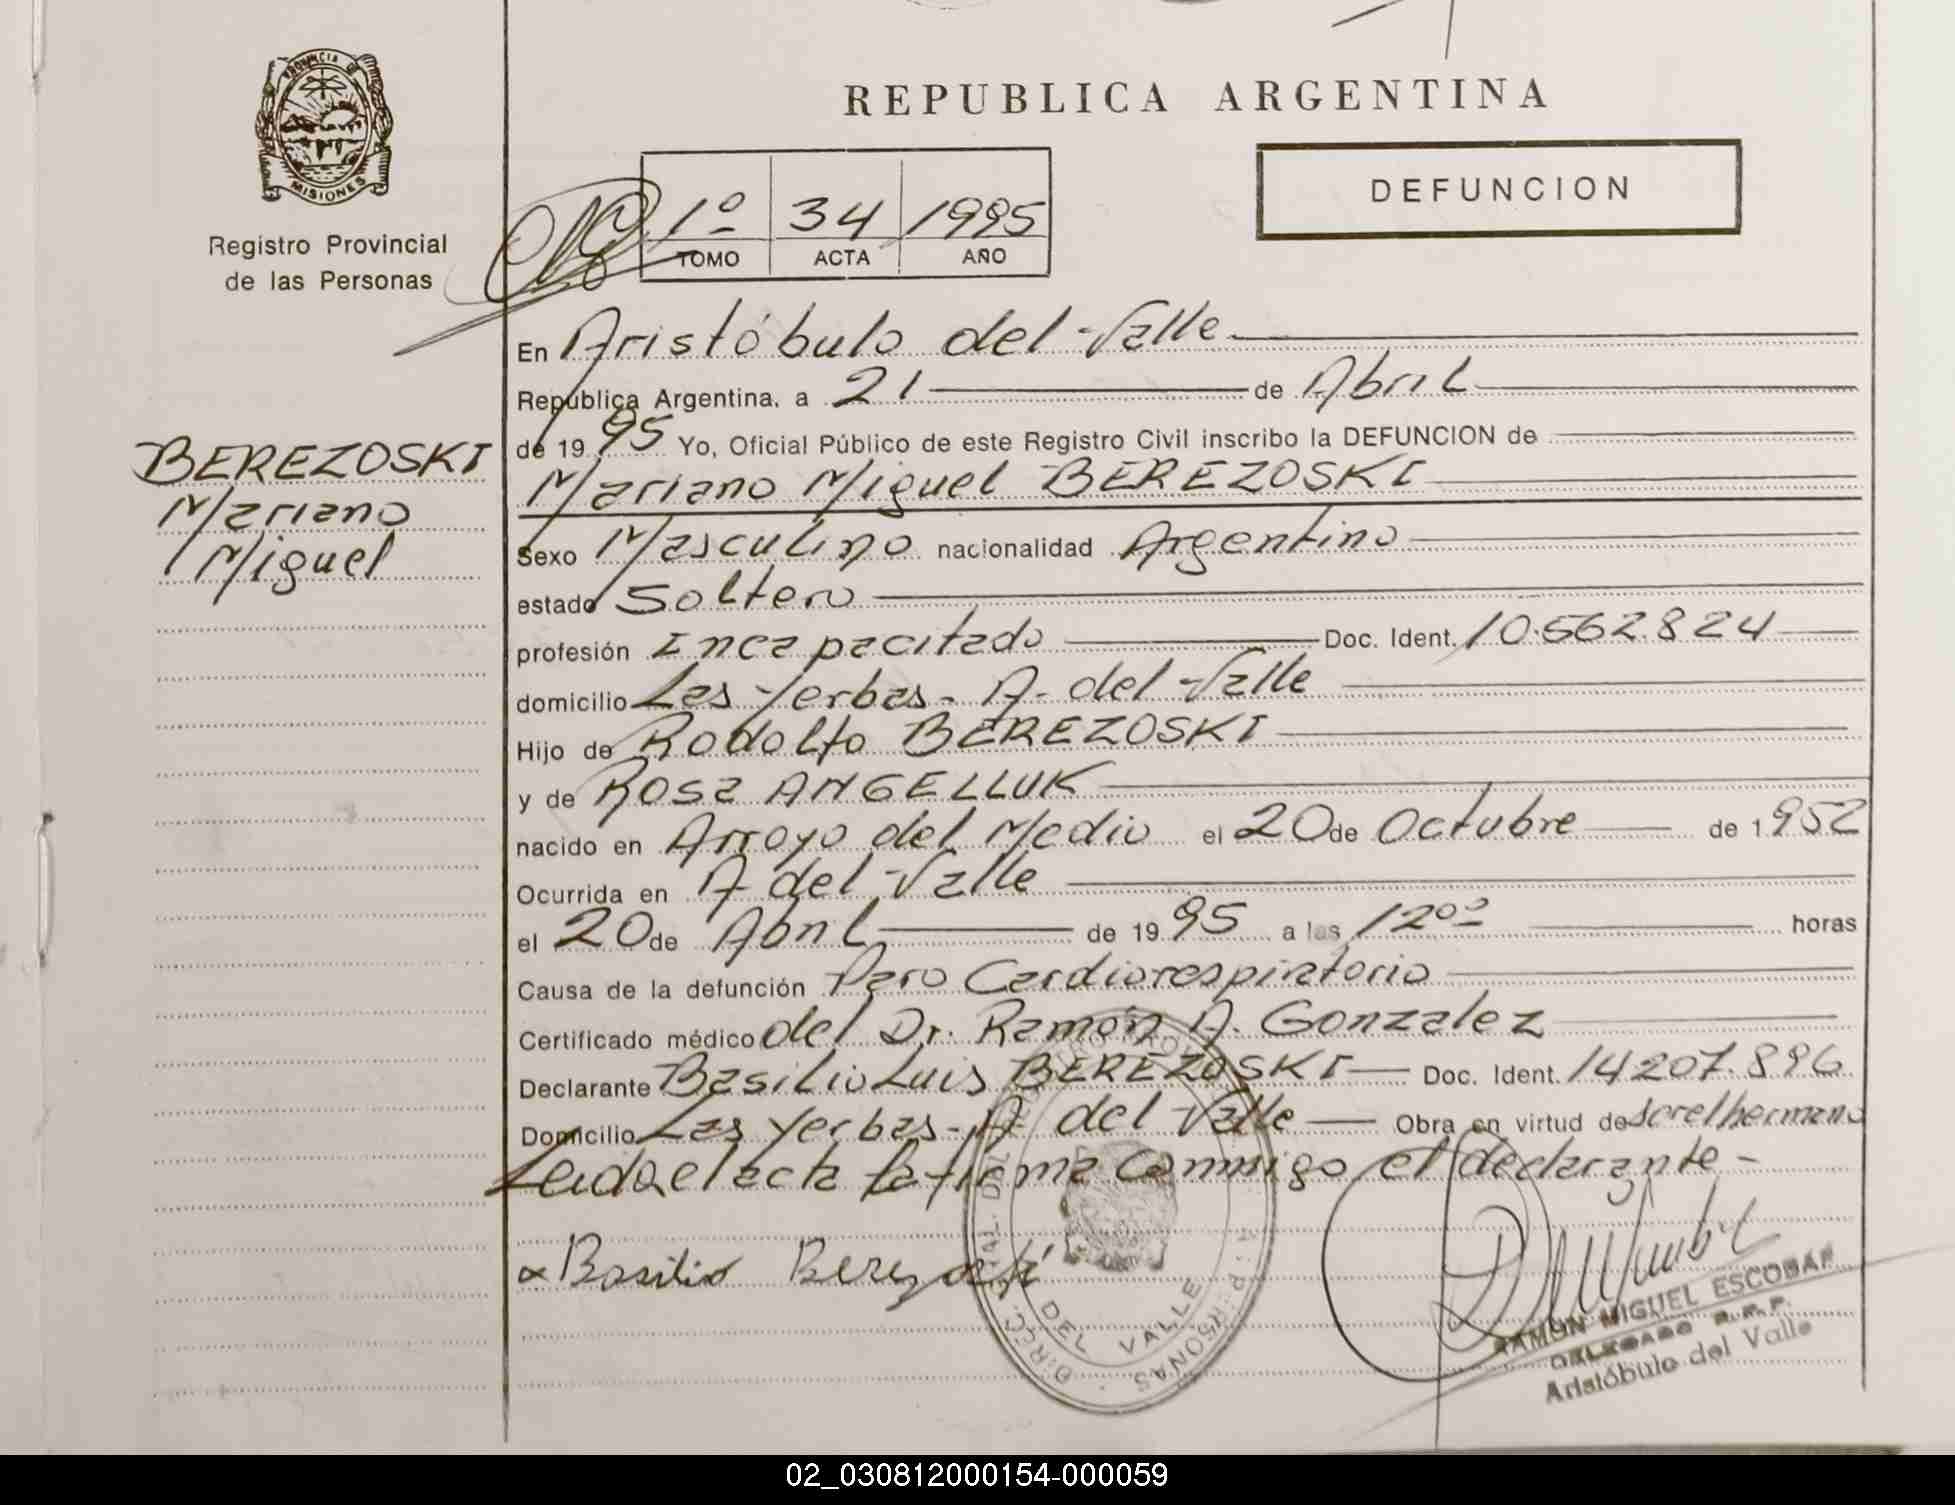 PROVINCIA DE
MISIONES
Registro Provincial
de las Personas
REPUBLICA ARGENTINA
DEFUNCION
1º 34 1995
TOMO ACTA AÑO
BEREZOSKI
Mariano
Miguel
En Aristóbulo del Valle
República Argentina, a 21 de Abril
de 19 95 Yo, Oficial Público de este Registro Civil inscribo la DEFUNCION de
Mariano Miguel BEREZOSKI
Sexo Masculino nacionalidad Argentino
estado Soltero
profesión Incapacitado Doc. Ident. 10.562.824
domicilio Las Yerbas - A. del Valle
Hijo de Rodolfo BEREZOSKI
y de Rosa ANGELLUK
nacido en Arroyo del Medio el 20 de Octubre de 1952
Ocurrida en A del Valle
el 20 de Abril de 19 95 a las 12⁰⁰ horas
Causa de la defunción Paro Cardiorespiratorio
Certificado médico del Dr. Ramón A. Gonzalez
Declarante Basilio Luis BEREZOSKI Doc. Ident. 14.207.896
Domicilio Las Yerbas - A del Valle Obra en virtud de ser el hermano
Leida el acta la firma conmigo el declarante -
Basilio Berezoski
DEL VALLE
RAMON MIGUEL ESCOBAR
DELEGADO R.P.P.
Aristóbulo del Valle
02_030812000154-000059